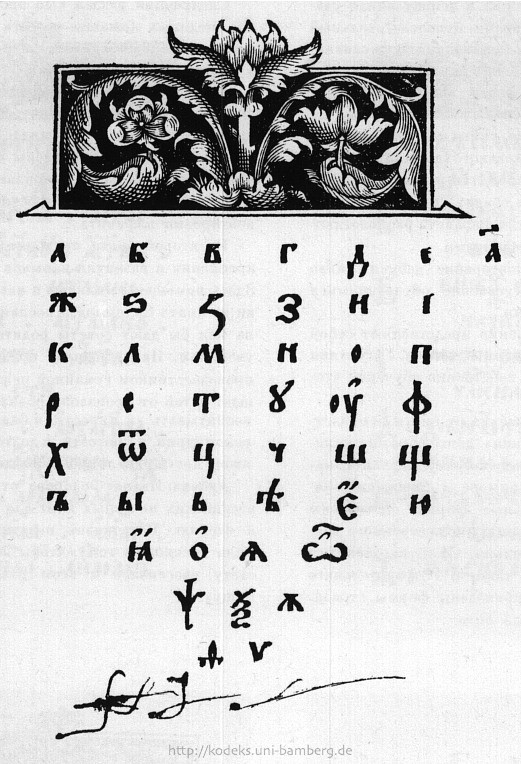 а б в г д е а҃
ж ѕ ꙁ з и і
к л м н о п
р с т ꙋ оу ф
х ѿ ц ч ш щ
ъ ы ь ѣ є ю
ꙗ о ѧ ѽ
ѱ ѯ ѫ
ѳ ѵ
http://kodeks.uni-bamberg.de